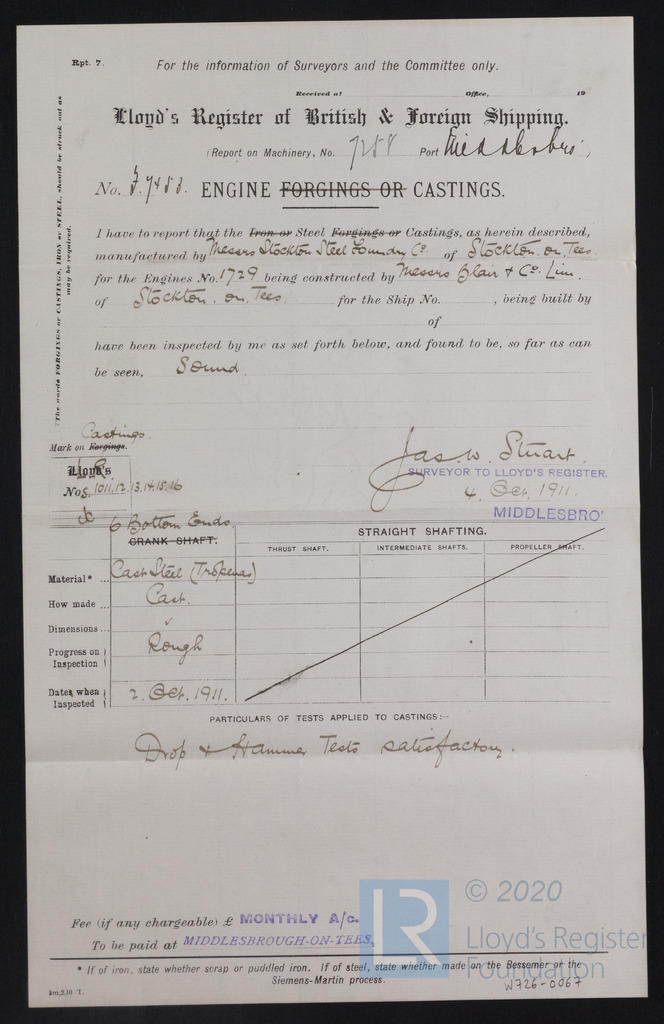 Rpt. 7.
For the information of Surveyors and the Committee only.
Received at Office, 19
Lloyd's Register of British & Foreign Shipping.
(Report on Machinery, No. 7258 Port Middlesbro')
No. F.7453. ENGINE FORGINGS OR CASTINGS.
The words FORGINGS or CASTINGS, IRON or STEEL, should be struck out as
may be required.
I have to report that the Iron or Steel Forgings or Castings, as herein described,
manufactured by Messrs Stockton Steel Foundry Co. of Stockton. on. Tees
for the Engines No. 1729 being constructed by Messrs Blair & Co. Lim.
of Stockton. on. Tees. for the Ship No. , being built by
of
have been inspected by me as set forth below, and found to be, so far as can
be seen, Sound.
Castings.
Mark on Forgings.
Lloyd's
Nos. 1011.12.13.14.15.16
Jas. W. Stuart.
SURVEYOR TO LLOYD'S REGISTER.
4. Oct. 1911.
MIDDLESBRO'
6 Bottom Ends.
CRANK SHAFT.
STRAIGHT SHAFTING.
THRUST SHAFT. INTERMEDIATE SHAFTS. PROPELLER SHAFT.
Material* ... Cast Steel (Tropenas)
How made ... Cast.
Dimensions ...
Progress on Inspection Rough
Dates when Inspected 2. Oct. 1911.
PARTICULARS OF TESTS APPLIED TO CASTINGS:—
Drop & Hammer Tests satisfactory.
Fee (if any chargeable) £ MONTHLY A/c.
To be paid at MIDDLESBROUGH-ON-TEES.
* If of iron, state whether scrap or puddled iron. If of steel, state whether made on the Bessemer or the
Siemens-Martin process.
LR
© 2020
Lloyd's Register
Foundation
W726-0067